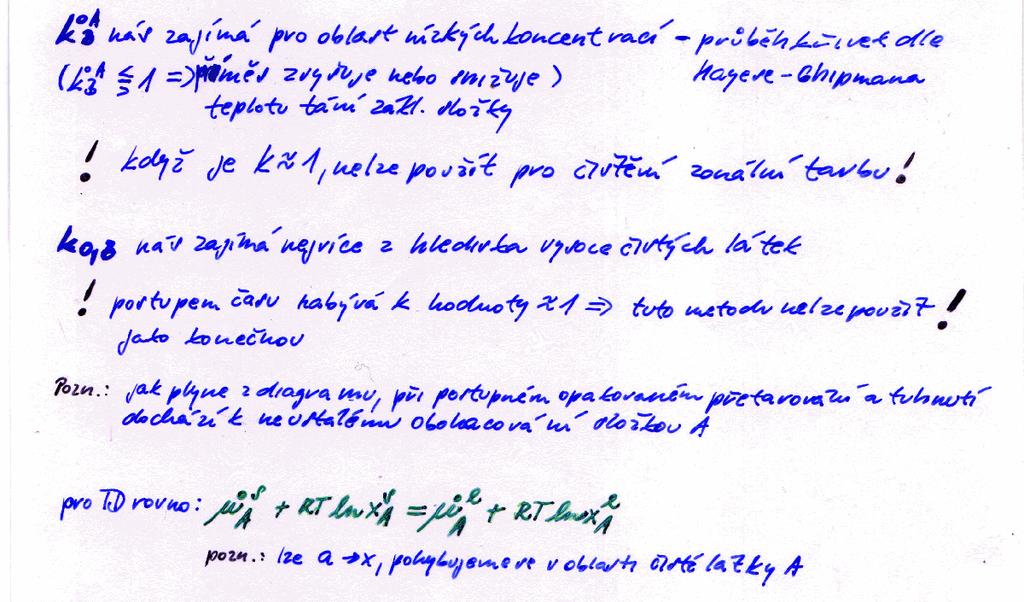 k°ᴬ_B nás zajímá pro oblast nízkých koncentrací – průběh křivek dle
(k°ᴬ_B ≶ 1 ⇒ příměs zvyšuje nebo snižuje) Hayese-Chipmana
teplotu tání zákl. složky
! když je k ≈ 1, nelze použít pro čištění zonální tavbu !
k₀,B nás zajímá nejvíce z hlediska vysoce čistých látek
! postupem času nabývá k hodnoty ≈ 1 ⇒ tuto metodu nelze použít !
jako konečnou
Pozn.: jak plyne z diagramu, při postupném opakovaném přetavování a tuhnutí
dochází k neustálému obohacování složkou A
pro TD rovno: μ°ˢ_A + RT ln xˢ_A = μ°ˡ_A + RT ln xˡ_A
pozn.: lze a → x, pohybujeme se v oblasti čisté látky A